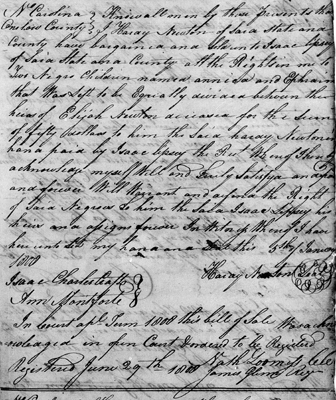 No Carolina } Know all men by these presents that
Onslow County } I Haray Newton of Said State and
County have bargained and sold unto Isaac
of Said State and County all the Right in
Two Negro Children named annisa and
that Was Left to be Equially divided between the
heirs of Elijah Newton deceased for the Sum
of fifty Dollars to him the Said haray Newton
hand paid by Isaac the
acknowledge myself Well and fully Satisfyed and
and forever Will Warrant and defend the Right
of Said Negroes to him the Said Isaac his
heirs and assigns forever In Witness Whereof I have
hereunto Set my hand this 5th
1808
Haray Newton Seal
Isaac Charlescraft
Ann Montfort
In Court apl Term 1808 this bill of Sale Was ack
nowledged in open Court Ordered to be Registered
Registered June 29th 1808
James Glenn Regr